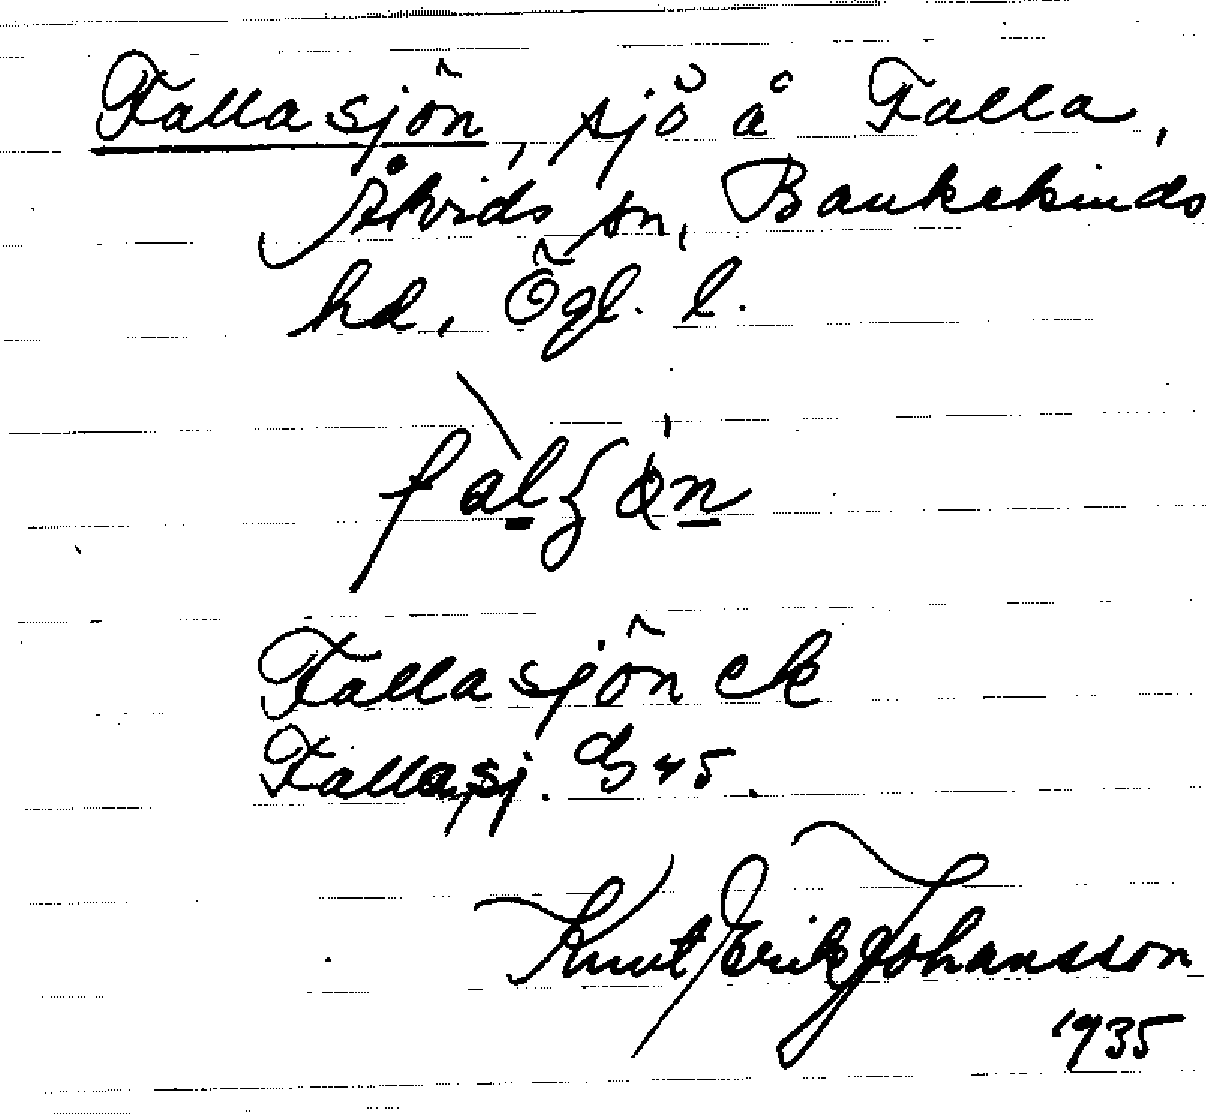 Fallasjön, sjö å Falla,
Åtvids sn, Bankekinds
hd, Ögl. l.
Fallasjön ek
Fallasj. G 45.
Knut Erik Johansson
1935